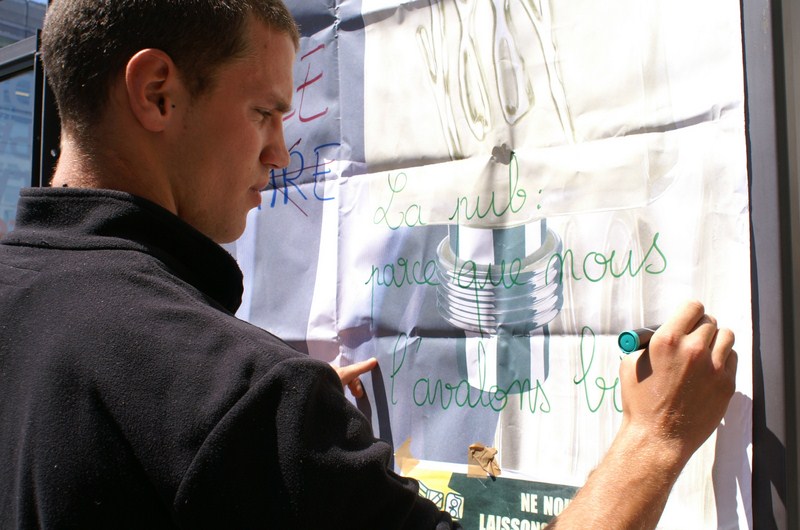 La pub:
parce que nous
l'avalons
NE NOU
LAISSONS